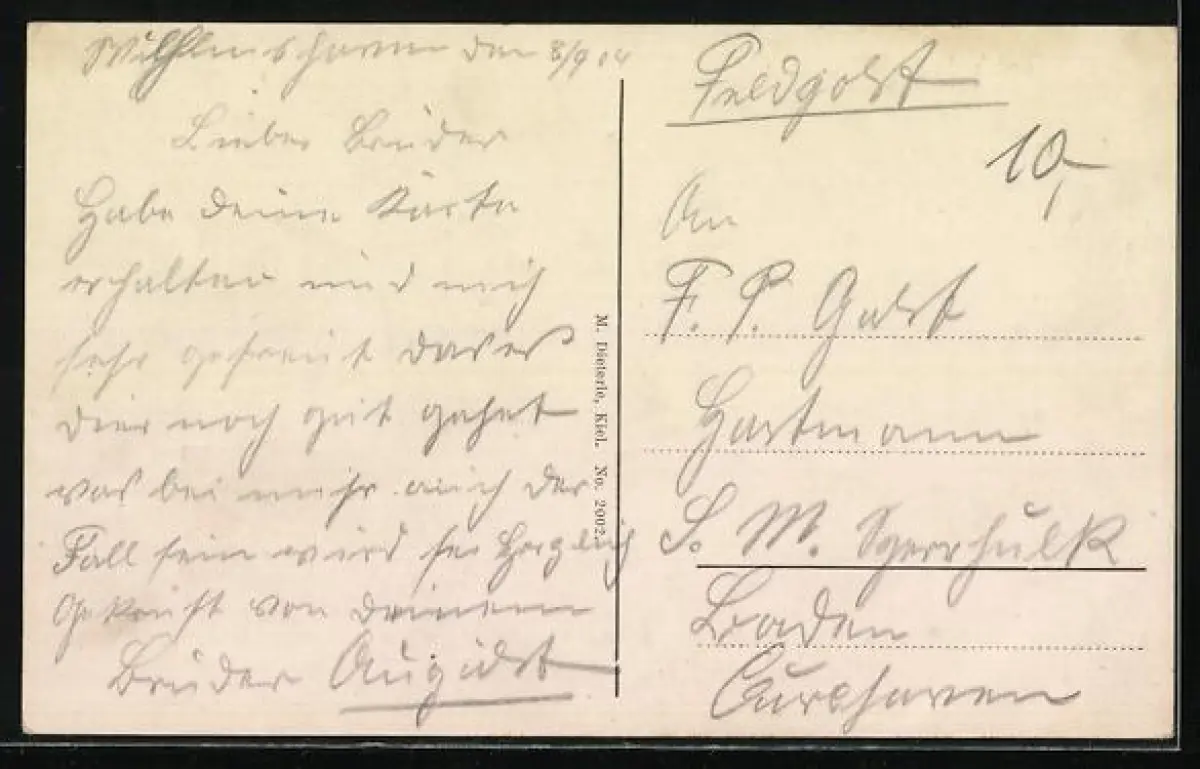 Wilhelmshaven den 8/9 14
Lieber Bruder
Habe deine Karte
erhalten und mich
sehr gefreut das es
dier noch gut gehet
was bei mihr auch der
Fall sein wird sei Herzlich
Gekrüst von deinem
Bruder August
M. Dieterle, Kiel. No. 2002.
Feldpost
10,-
An
F. P. Gast
Hartmann
S. M. Sperrhulk
Baden
Cuxhaven